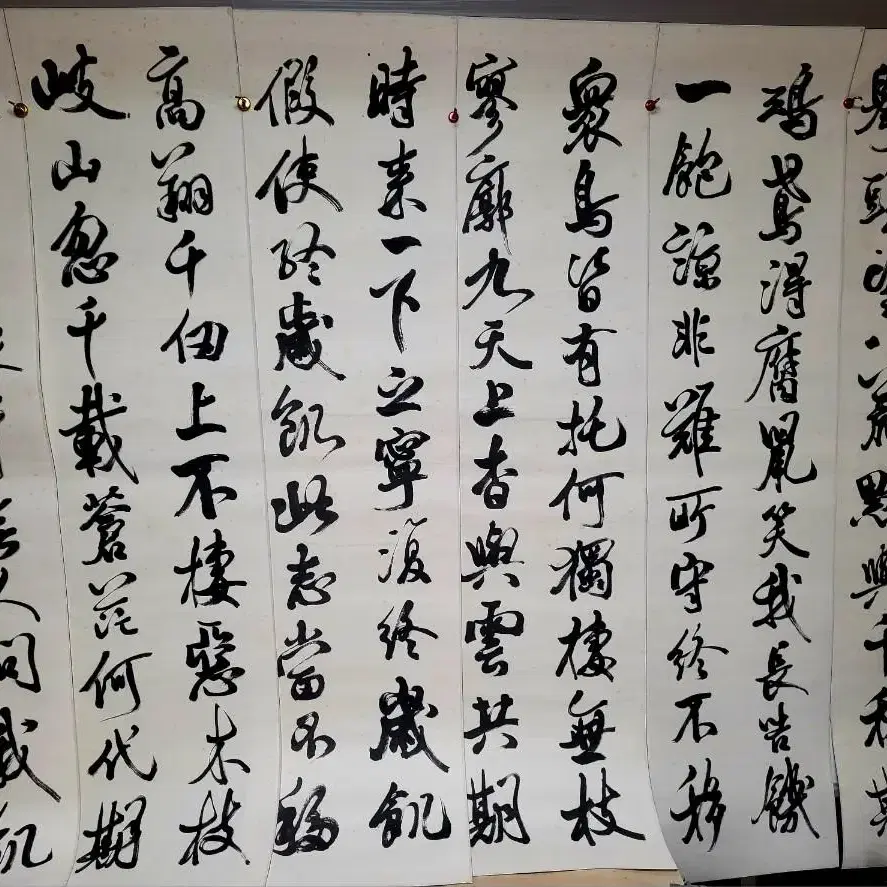 舉頭望八荒默與千秋期
鴟鳶得腐鼠笑我長告饑
一飽諒非難所守終不移
衆鳥皆有托何獨棲無枝
寥廓九天上杳與雲共期
時來一下之寧復終歲飢
假使終歲飢此志當不移
高翔千仞上不棲惡木枝
岐山忽千載蒼茫何代期
人問